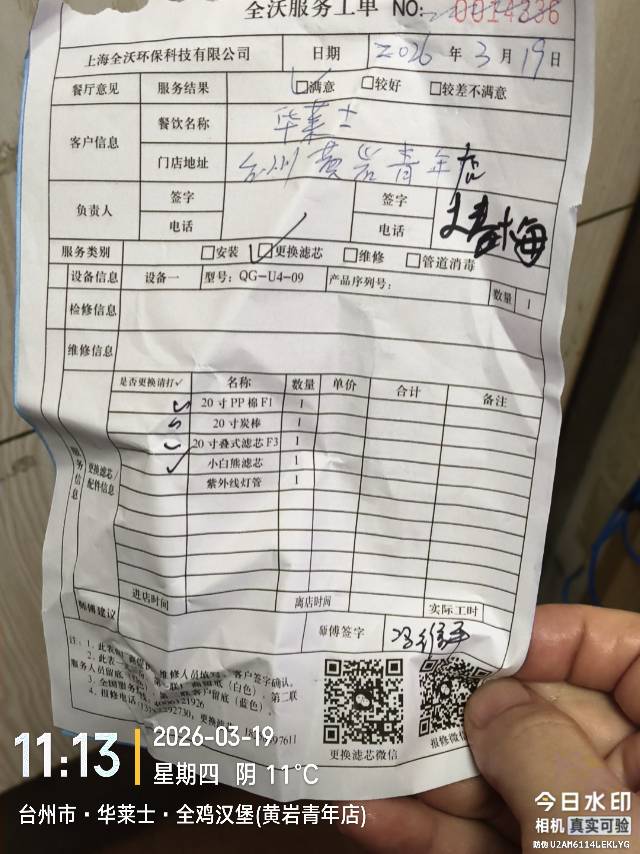 全沃服务工单 NO: 0014336
上海全沃环保科技有限公司 日期 2026 年 3 月 19 日
餐厅意见 服务结果 ☑满意 □较好 □较差不满意
客户信息 餐饮名称 华莱士
门店地址 台州黄岩青年店
负责人 签字 签字
电话 电话
服务类别 □安装 ☑更换滤芯 □维修 □管道消毒
设备信息 设备一 型号: QG-U4-09 产品序列号: 数量 1
检修信息
维修信息
服务信息 更换滤芯/配件信息
是否更换请打✓ 名称 数量 单价 合计 备注
✓ 20寸PP棉F1 1
✓ 20寸炭棒 1
✓ 20寸叠式滤芯F3 1
✓ 小白熊滤芯 1
紫外线灯管 1
进店时间 离店时间 实际工时
师傅建议 师傅签字
注: 1. 此表 维修人员填写, 客户签字确认。
2. 此表一 (白色), 第二联
服务人员留底 客户留底(蓝色)。
3. 全国服务
4. 报修电话 更换滤芯
更换滤芯微信 报修微信
11:13 2026-03-19
星期四 阴 11°C
台州市·华莱士·全鸡汉堡(黄岩青年店)
今日水印
相机 真实可验
防伪 U2AM6114LEKLYG